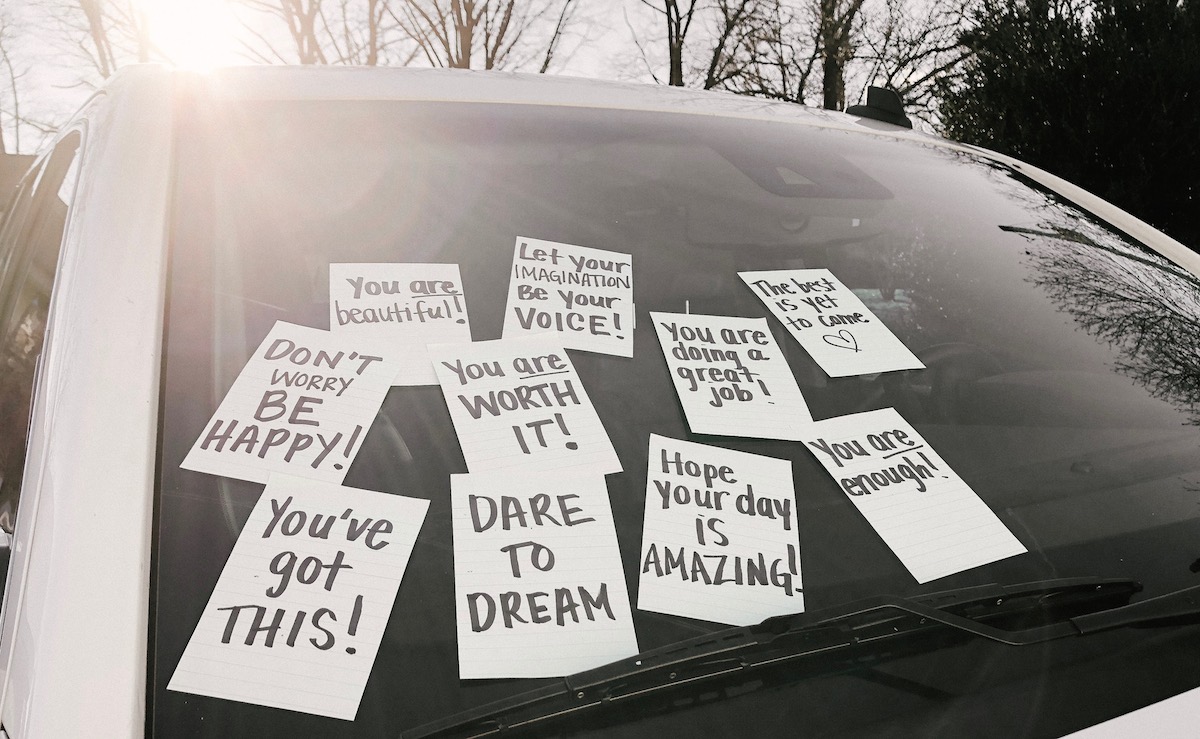 You are
beautiful!
Let your
IMAGINATION
Be your
VOICE!
The best
is yet
to come
DON'T
WORRY
BE
HAPPY!
You are
WORTH
IT!
You are
doing a
great
job!
You are
enough!
You've
got
THIS!
DARE
TO
DREAM
Hope
your day
is
AMAZING!